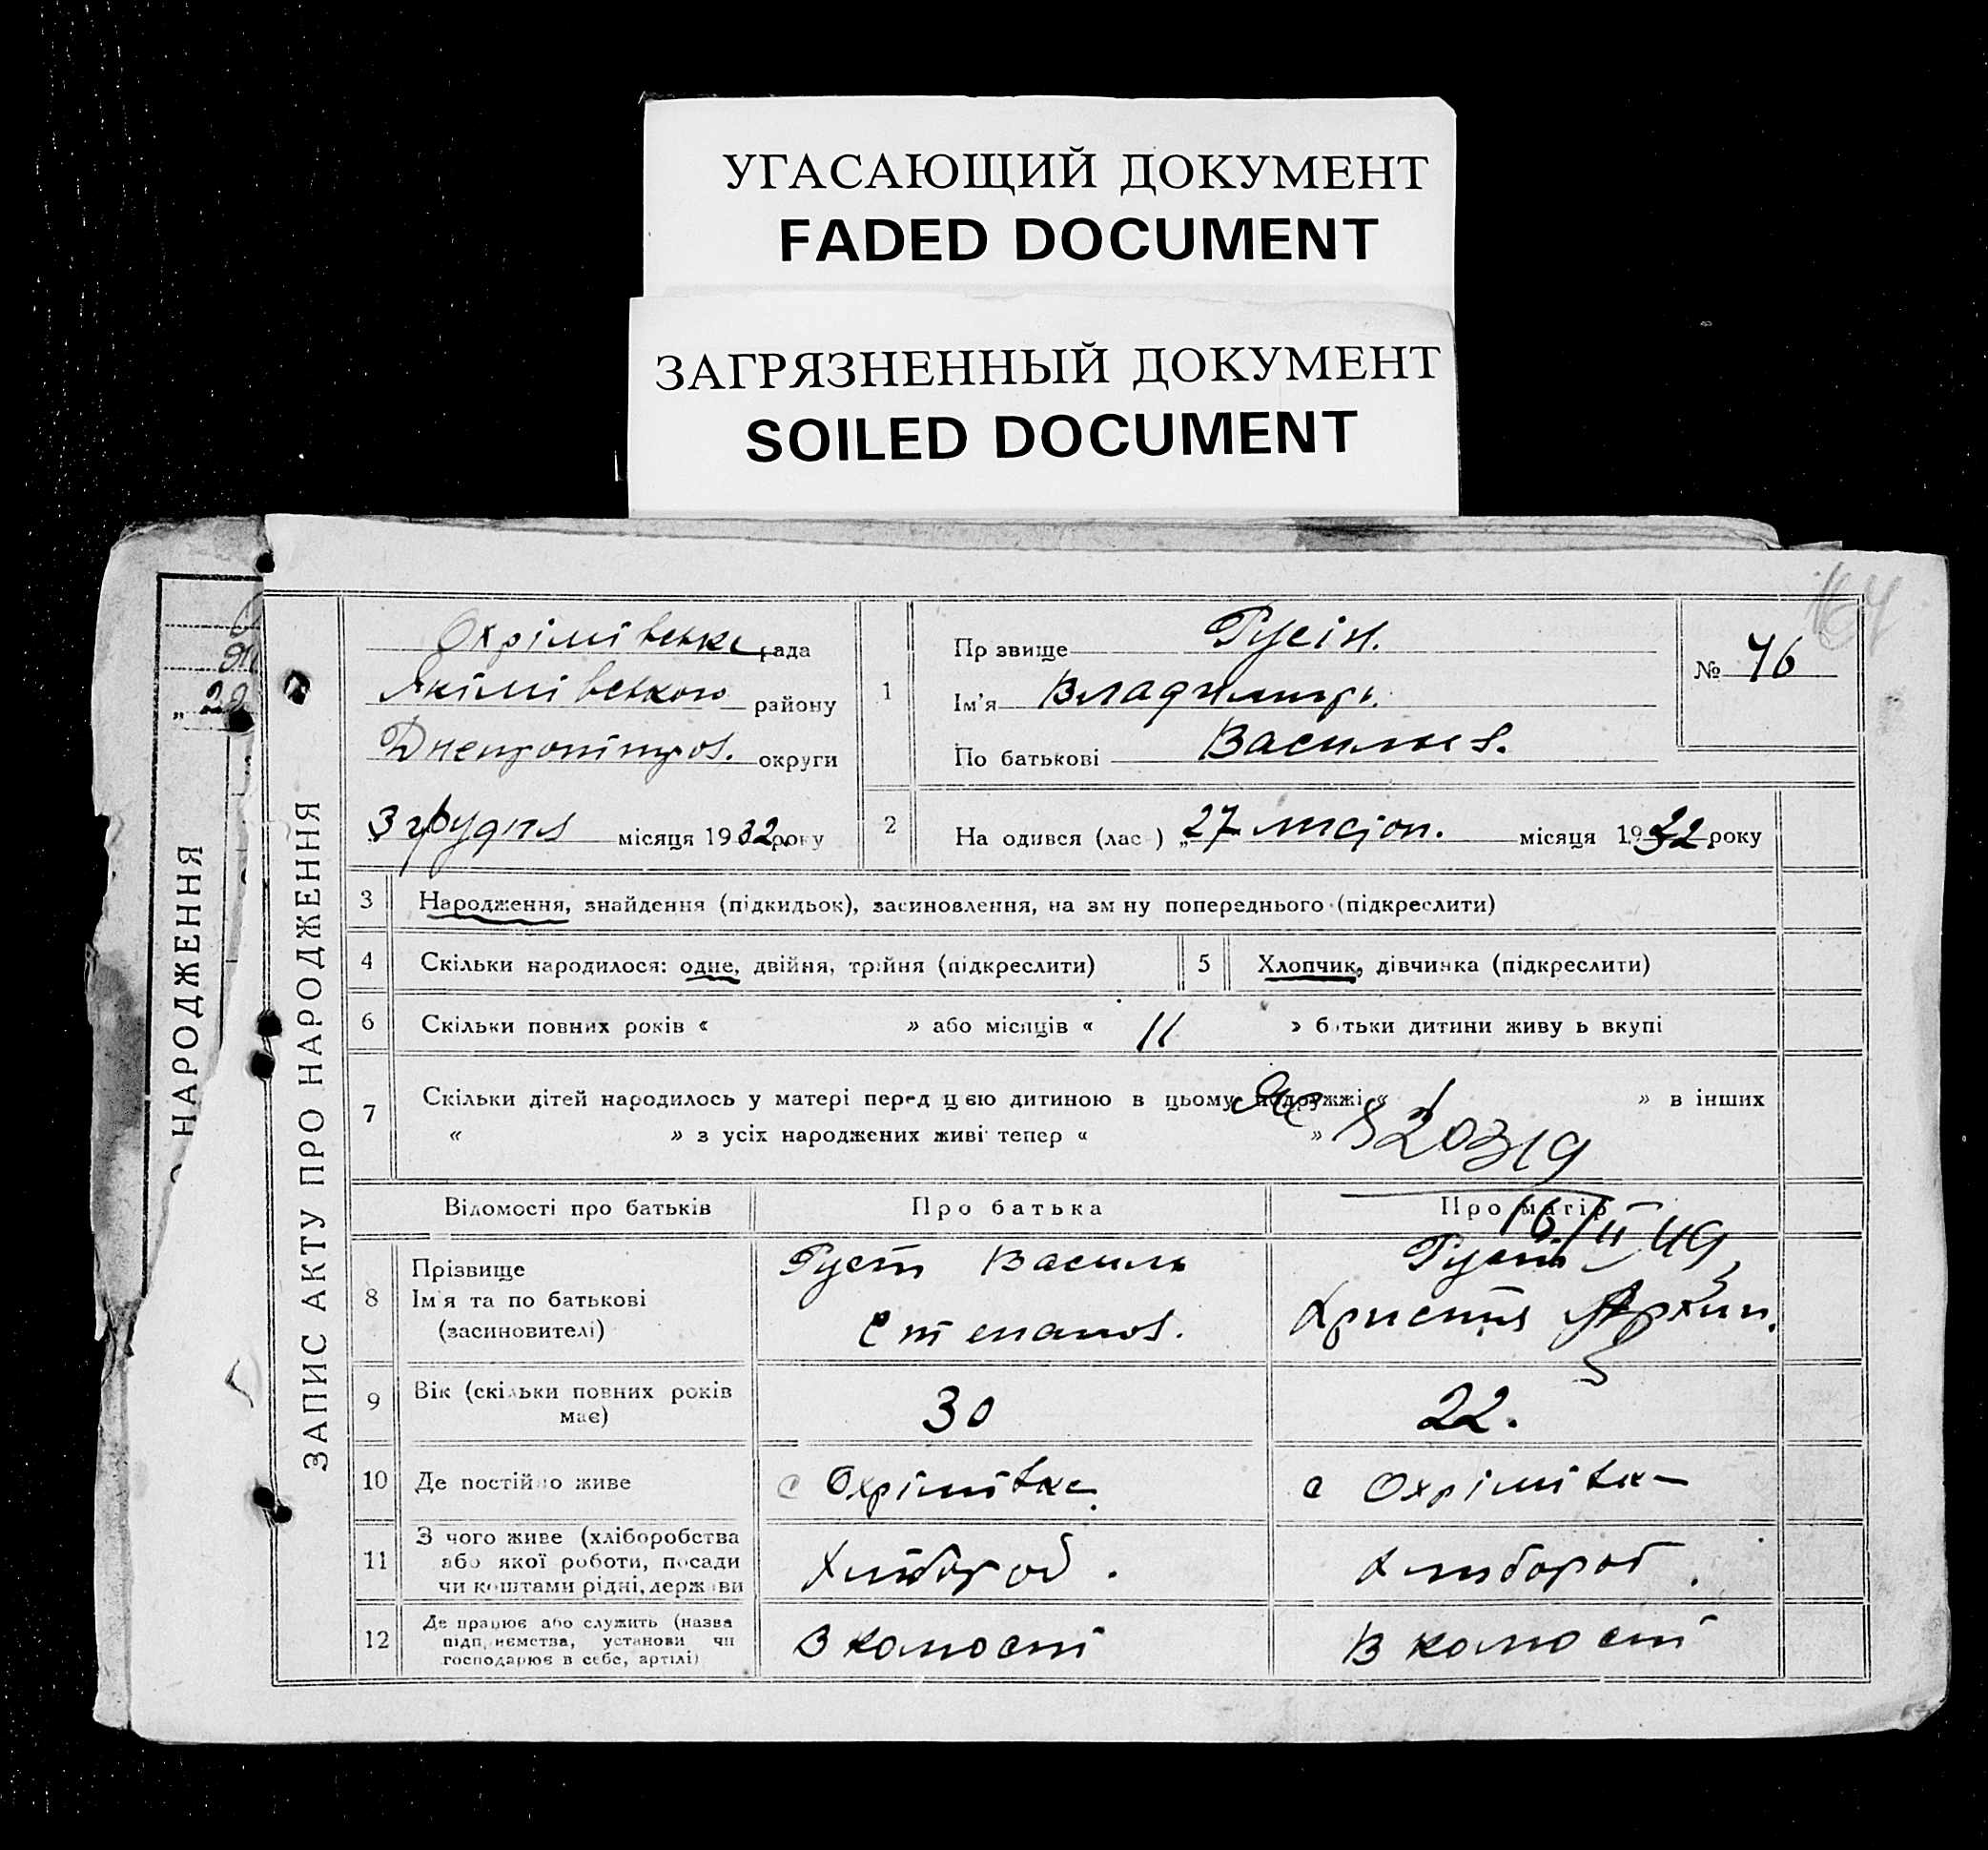 УГАСАЮЩИЙ ДОКУМЕНТ
FADED DOCUMENT
ЗАГРЯЗНЕННЫЙ ДОКУМЕНТ
SOILED DOCUMENT
НАРОДЖЕННЯ
ЗАПИС АКТУ ПРО НАРОДЖЕННЯ
Охрімівська рада
Якімівського району
округи
3 грудня місяця 1932 року
1
Пр звище Русін.
Ім'я Владимир.
По батькові Василів.
№ 76
2
На одився (лас ) „27 листоп. місяця 1932 року
3 Народження, знайдення (підкидьок), засиновлення, на зм ну попереднього (підкреслити)
4 Скільки народилося: одне, двійня, трійня (підкреслити)
5 Хлопчик, дівчинка (підкреслити)
6 Скільки повних років « » або місяців « 11 » б тьки дитини живу ь вкупі
7 Скільки дітей народилось у матері перед цією дитиною в цьому подружжі « » в інших
« » з усіх народжених живі тепер « »
20319
Відомості про батьків
Про батька
Про матір
16/II 49
8 Прізвище
Ім'я та по батькові
(засиновителі)
Русін Василь
Степанов.
Русін
Христя Архип.
9 Вік (скільки повних років
має)
30
22.
10 Де постійно живе
с Охрімівка
с Охрімівка
11 З чого живе (хліборобства
або якої роботи, посади
чи коштами рідні, держ ви
Хлібороб.
Хлібороб.
12 Де працює або служить (назва
підп иємства, установи чи
господарює в себе, артілі)
В колгоспі
В колгоспі